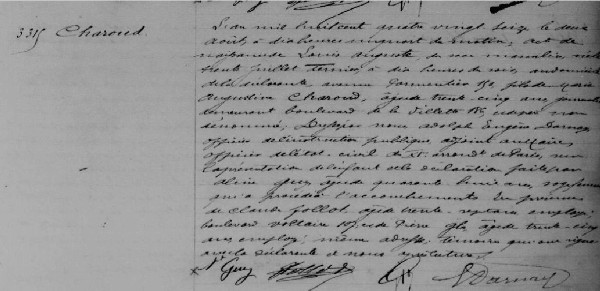 3315 Charoud.
L'an mil huit cent quatre vingt seize le deux
août, à dix heures un quart du matin, acte de
naissance de Louis Auguste, de sexe masculin, né le
trente juillet dernier, à dix heures du soir, au domicile
de la déclarante, avenue Parmentier 15, fils de Marie
Augustine Charoud, âgée de trente-cinq ans, journalière
demeurant boulevard de la Villette 18, et de père non
dénommé. Dressé par nous Adolph Eugène Darnay
officier de l'instruction publique, adjoint au maire,
officier de l'état-civil du XI arrondt de Paris, sur
la présentation de l'enfant et la déclaration faite par
Guy, âgée de quarante huit ans, sage femme
qui a procédé à l'accouchement. En présence
de Claude Follot, âgé de trente ans, employé,
boulevard Voltaire et de Pierre âgé de trente-cinq
ans employé, même adresse, témoins qui ont signé
avec la déclarante et nous après lecture.
Guy Follot E Darnay